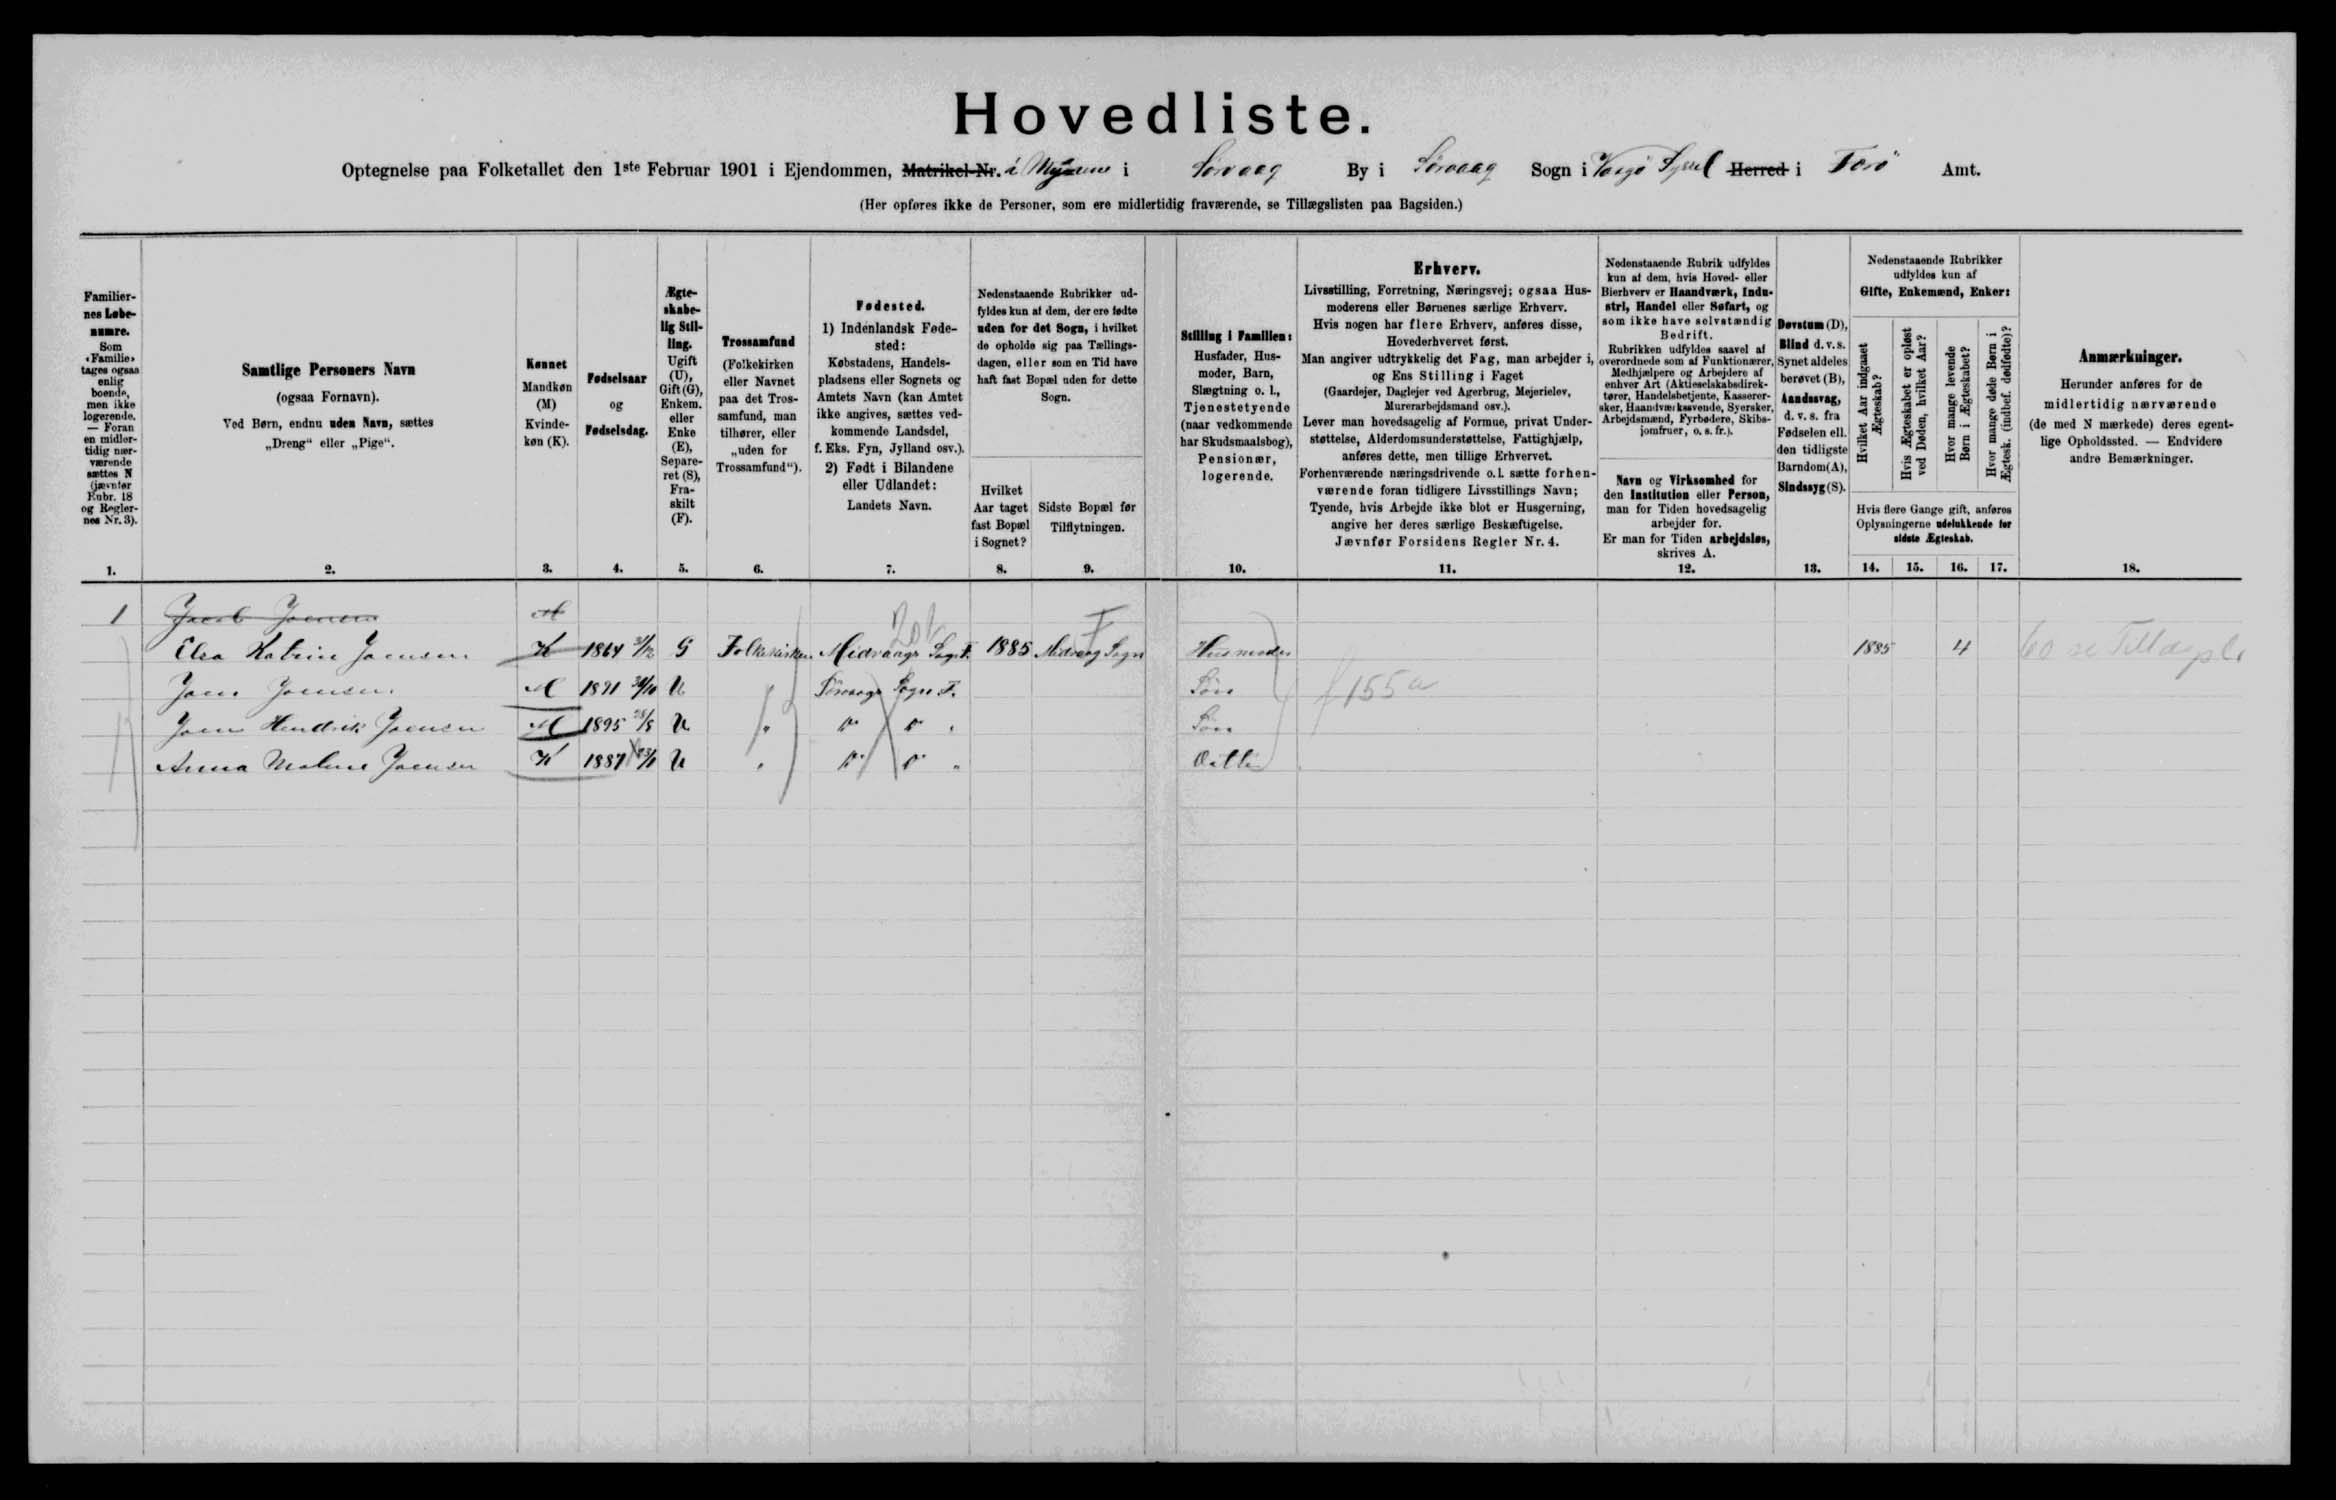 Hovedliste.
Optegnelse paa Folketallet den 1ste Februar 1901 i Ejendommen, Matrikel-Nr. i i Sörvaag By i Sörvaag Sogn i Vaagö Syssel Herred i Færö Amt.
(Her opføres ikke de Personer, som ere midlertidig fraværende, se Tillægslisten paa Bagsiden.)
Familier-
nes Løbe-
numre.
Som
«Familie»
tages ogsaa
enlig
boende,
men ikke
logerende.
— Foran
en midler-
tidig nær-
værende
sættes N
(jævnfør
Rubr. 18
og Regler-
nes Nr. 3).
1.
Samtlige Personers Navn
(ogsaa Fornavn).
Ved Børn, endnu uden Navn, sættes
„Dreng“ eller „Pige“.
2.
Kønnet
Mandkøn
(M)
Kvinde-
køn (K).
3.
Fødselsaar
og
Fødselsdag.
4.
Ægte-
skabe-
lig Stil-
ling.
Ugift
(U),
Gift (G),
Enkem.
eller
Enke
(E),
Separe-
ret (S),
Fra-
skilt
(F).
5.
Trossamfund
(Folkekirken
eller Navnet
paa det Tros-
samfund, man
tilhører, eller
„uden for
Trossamfund“).
6.
Fødested.
1) Indenlandsk Føde-
sted:
Købstadens, Handels-
pladsens eller Sognets og
Amtets Navn (kan Amtet
ikke angives, sættes ved-
kommende Landsdel,
f. Eks. Fyn, Jylland osv.).
2) Født i Bilandene
eller Udlandet:
Landets Navn.
7.
Nedenstaaende Rubrikker ud-
fyldes kun af dem, der ere fødte
uden for det Sogn, i hvilket
de opholde sig paa Tællings-
dagen, eller som en Tid have
haft fast Bopæl uden for dette
Sogn.
Hvilket
Aar taget
fast Bopæl
i Sognet?
8.
Sidste Bopæl før
Tilflytningen.
9.
Stilling i Familien:
Husfader, Hus-
moder, Barn,
Slægtning o. l.,
Tjenestetyende
(naar vedkommende
har Skudsmaalsbog),
Pensionær,
logerende.
10.
Erhverv.
Livsstilling, Forretning, Næringsvej; ogsaa Hus-
moderens eller Børnenes særlige Erhverv.
Hvis nogen har flere Erhverv, anføres disse,
Hovederhvervet først.
Man angiver udtrykkelig det Fag, man arbejder i,
og Ens Stilling i Faget
(Gaardejer, Daglejer ved Agerbrug, Mejerielev,
Murerarbejdsmand osv.).
Lever man hovedsagelig af Formue, privat Under-
støttelse, Alderdomsunderstøttelse, Fattighjælp,
anføres dette, men tillige Erhvervet.
Forhenværende næringsdrivende o. l. sætte forhen-
værende foran tidligere Livsstillings Navn;
Tyende, hvis Arbejde ikke blot er Husgerning,
angive her deres særlige Beskæftigelse.
Jævnfør Forsidens Regler Nr. 4.
11.
Nedenstaaende Rubrik udfyldes
kun af dem, hvis Hoved- eller
Bierhverv er Haandværk, Indu-
stri, Handel eller Søfart, og
som ikke have selvstændig
Bedrift.
Rubrikken udfyldes saavel af
overordnede som af Funktionærer,
Medhjælpere og Arbejdere af
enhver Art (Aktieselskabsdirek-
tører, Handelsbetjente, Kasserer-
sker, Haandværkssvende, Syersker,
Arbejdsmænd, Fyrbødere, Skibs-
jomfruer, o. s. fr.).
Navn og Virksomhed for
den Institution eller Person,
man for Tiden hovedsagelig
arbejder for.
Er man for Tiden arbejdsløs,
skrives A.
12.
Døvstum (D),
Blind d. v. s.
Synet aldeles
berøvet (B),
Aandssvag,
d. v. s. fra
Fødselen ell.
den tidligste
Barndom (A),
Sindssyg (S).
13.
Nedenstaaende Rubrikker
udfyldes kun af
Gifte, Enkemænd, Enker:
Hvilket Aar indgaaet
Ægteskab?
Hvis Ægteskabet er opløst
ved Døden, hvilket Aar?
Hvor mange levende
Børn i Ægteskabet?
Hvor mange døde Børn i
Ægtesk. (indbef. dødfødte)?
Hvis flere Gange gift, anføres
Oplysningerne udelukkende for
sidste Ægteskab.
14. 15. 16. 17.
Anmærkninger.
Herunder anføres for de
midlertidig nærværende
(de med N mærkede) deres egent-
lige Opholdssted. — Endvidere
andre Bemærkninger.
18.
1 Jacob Joensen M
Elsa Katrine Joensen K 1864 31/12 G Folkekirken Midvaags Sogn F. 1885 Midvaag Sogn Husmoder 1885 4 60 se Tillægsl.
Joen Joensen M 1891 U Sörvaags Sogn F. Sön 155a
Joen Hendrik Joensen M 1895 U " " " " Sön
Anna Malene Joensen K 1887 U " " " " Datter